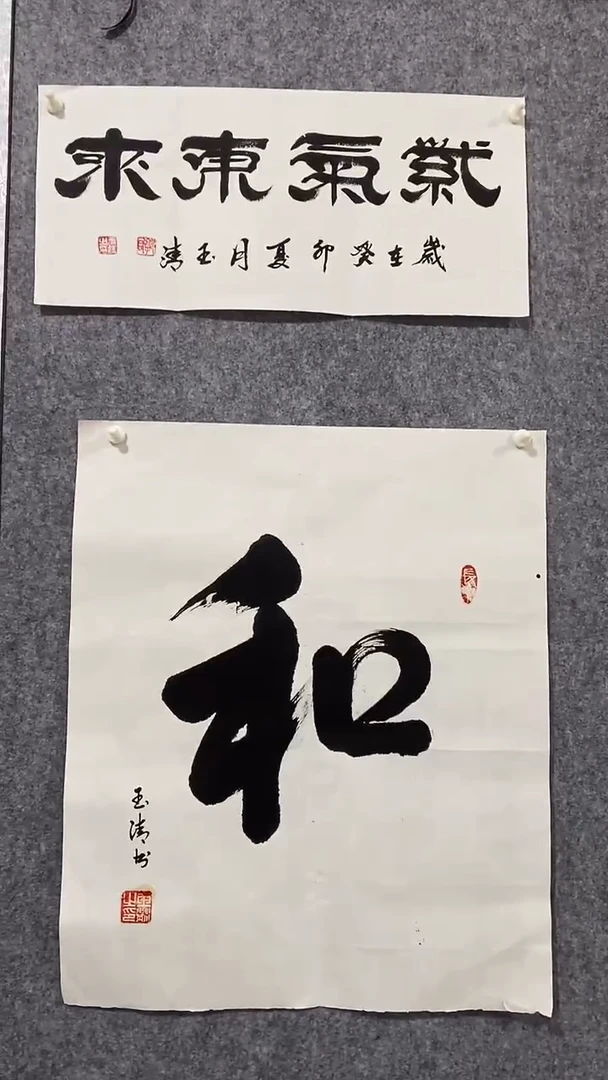 紫氣東來
歲在癸卯夏月玉清
和
玉清书